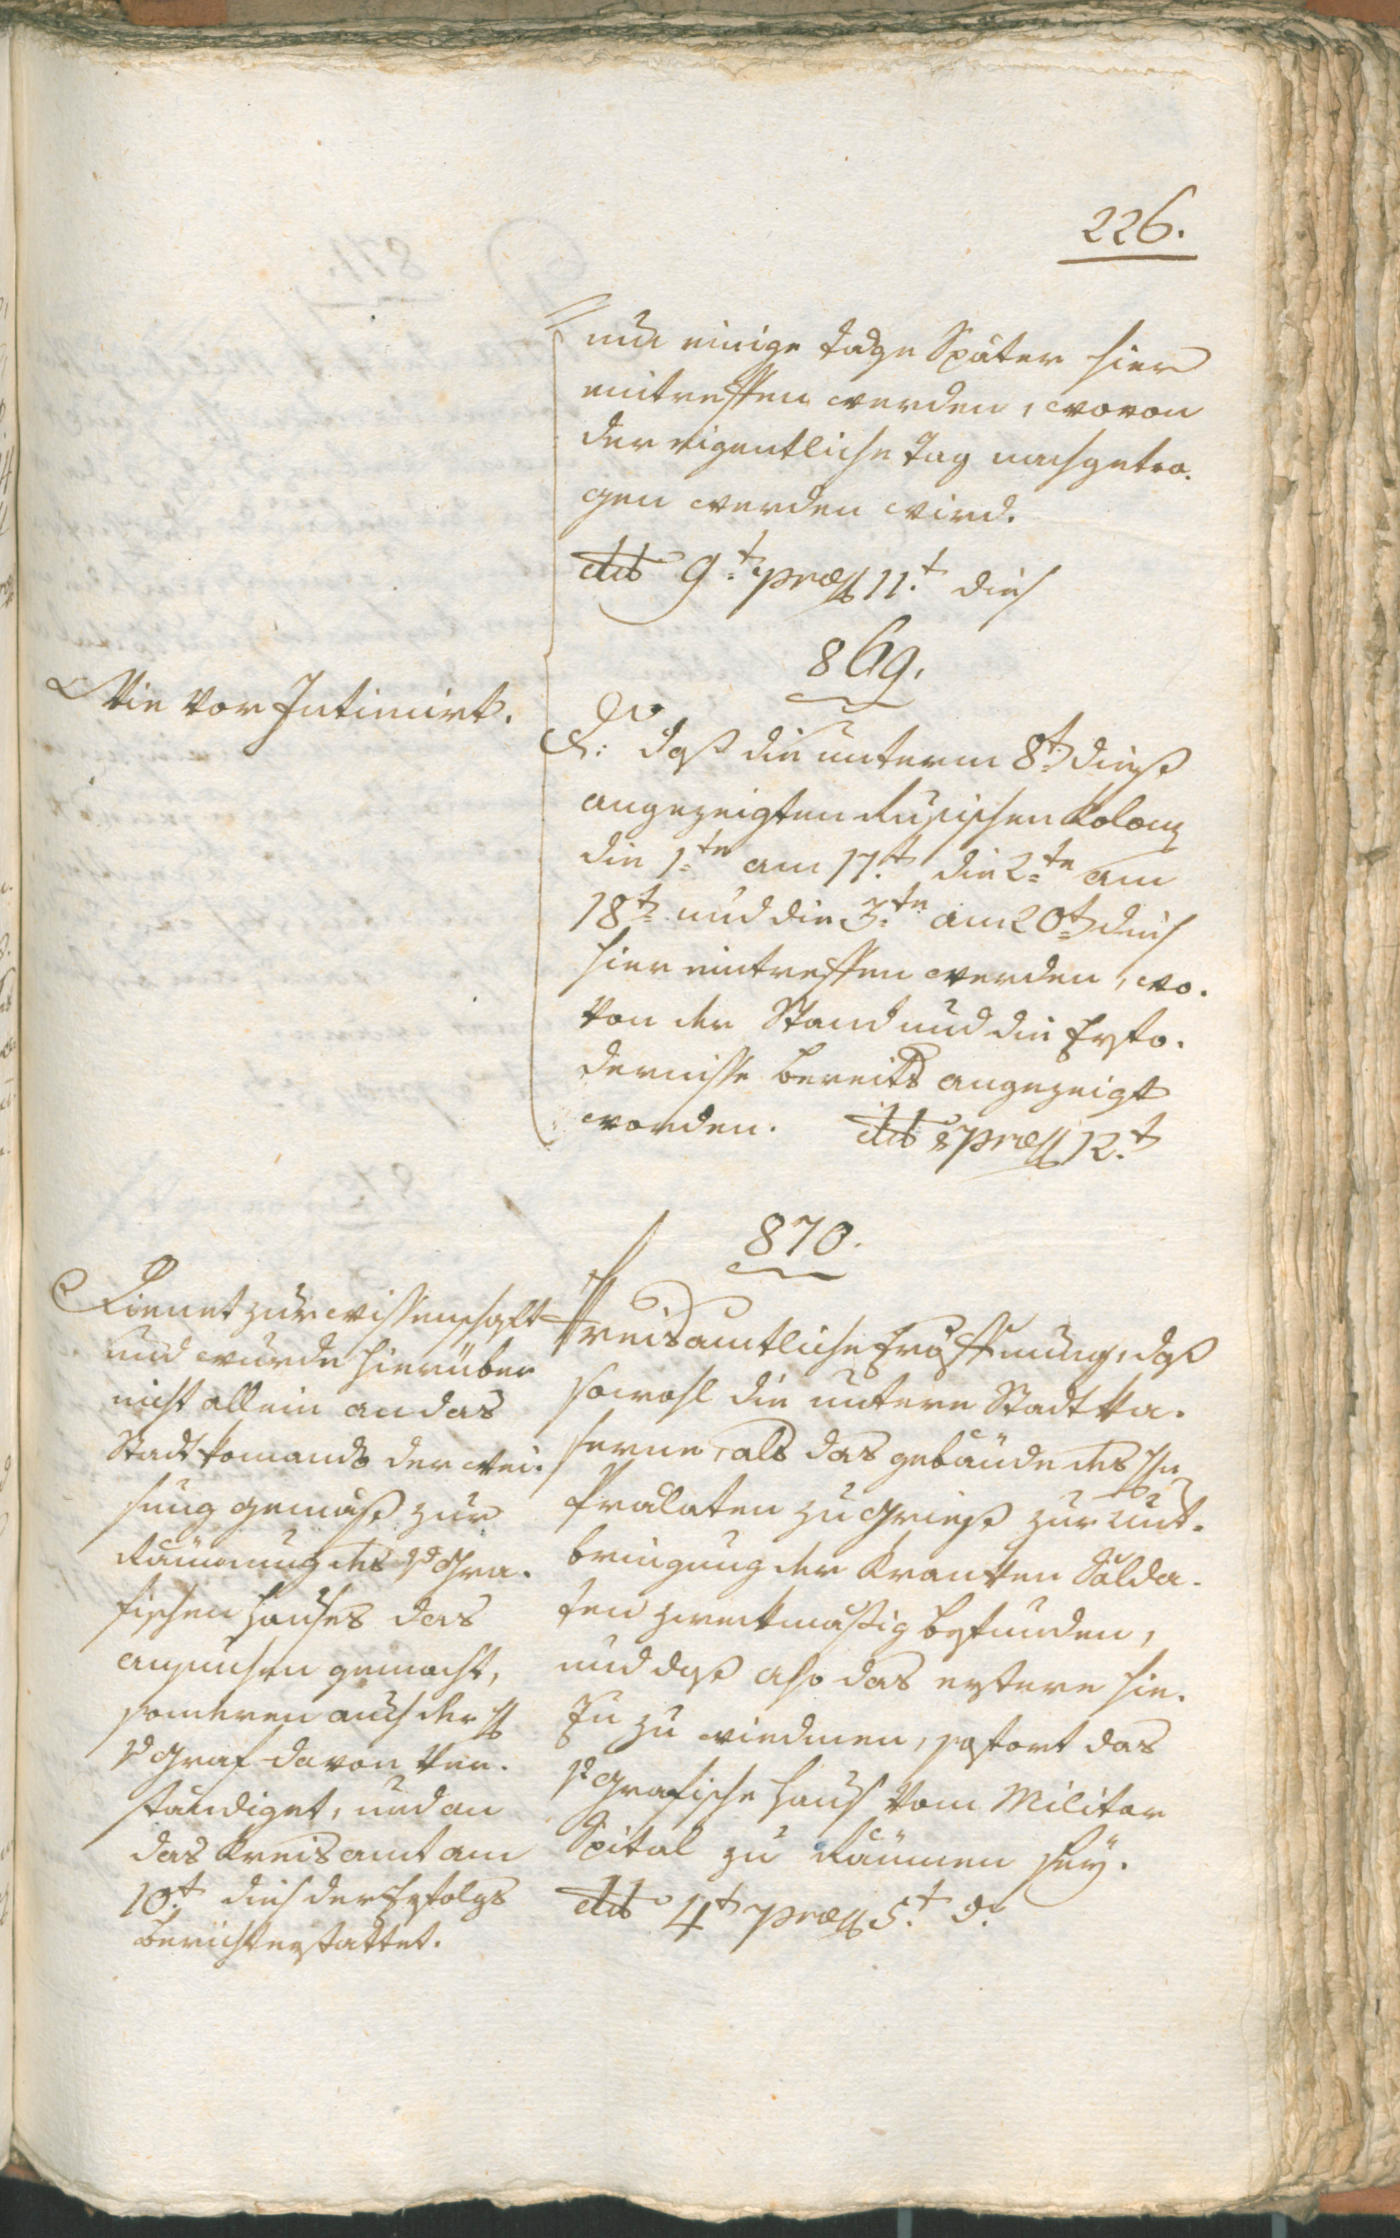 226.
nur einige Tage Später hier
eintreffen werden, wovon
der eigentliche Tag nachgetra.
gen werden wird.
dtto 9.t præs 11.t dies
869.
Wie vor Intimirt.
daß die unterm 8t dieß
angezeigten Rußischen Kolon̅
die 1.te am 17.t die 2.te am
18t und die 3.te am 20t dies
hier eintreffen werden, wo.
von der Stand und die Erfo.
derniße bereits angezeigt
worden. dtto præs 12.t
870.
Dienet zur wissenschaft
und wurde hierüber
nicht allein an das
Stadt komando der wei.
sung gemäß zur
Räumung des Gra.
fischen Hauses das
ansuchen gemacht,
sonderen auch der H
Graf davon ver.
ständiget, und an
das Kreisamt am
10.t dies der Erfolgs
bericht erstattet.
Kreisamtliche Eröffnung, daß
sowohl die untere Stadtka.
serne, als das gebäude des Hn
Prälaten zu Grieß zur Unt.
bringung der Kranken Solda.
ten zwekmäßig befunden,
und daß also das erstere hie.
zu zu wiedmen, sofort das
Grafische Haus vom Militar
Spital zu Räumen sey.
dtto 4t præs 5.t d.